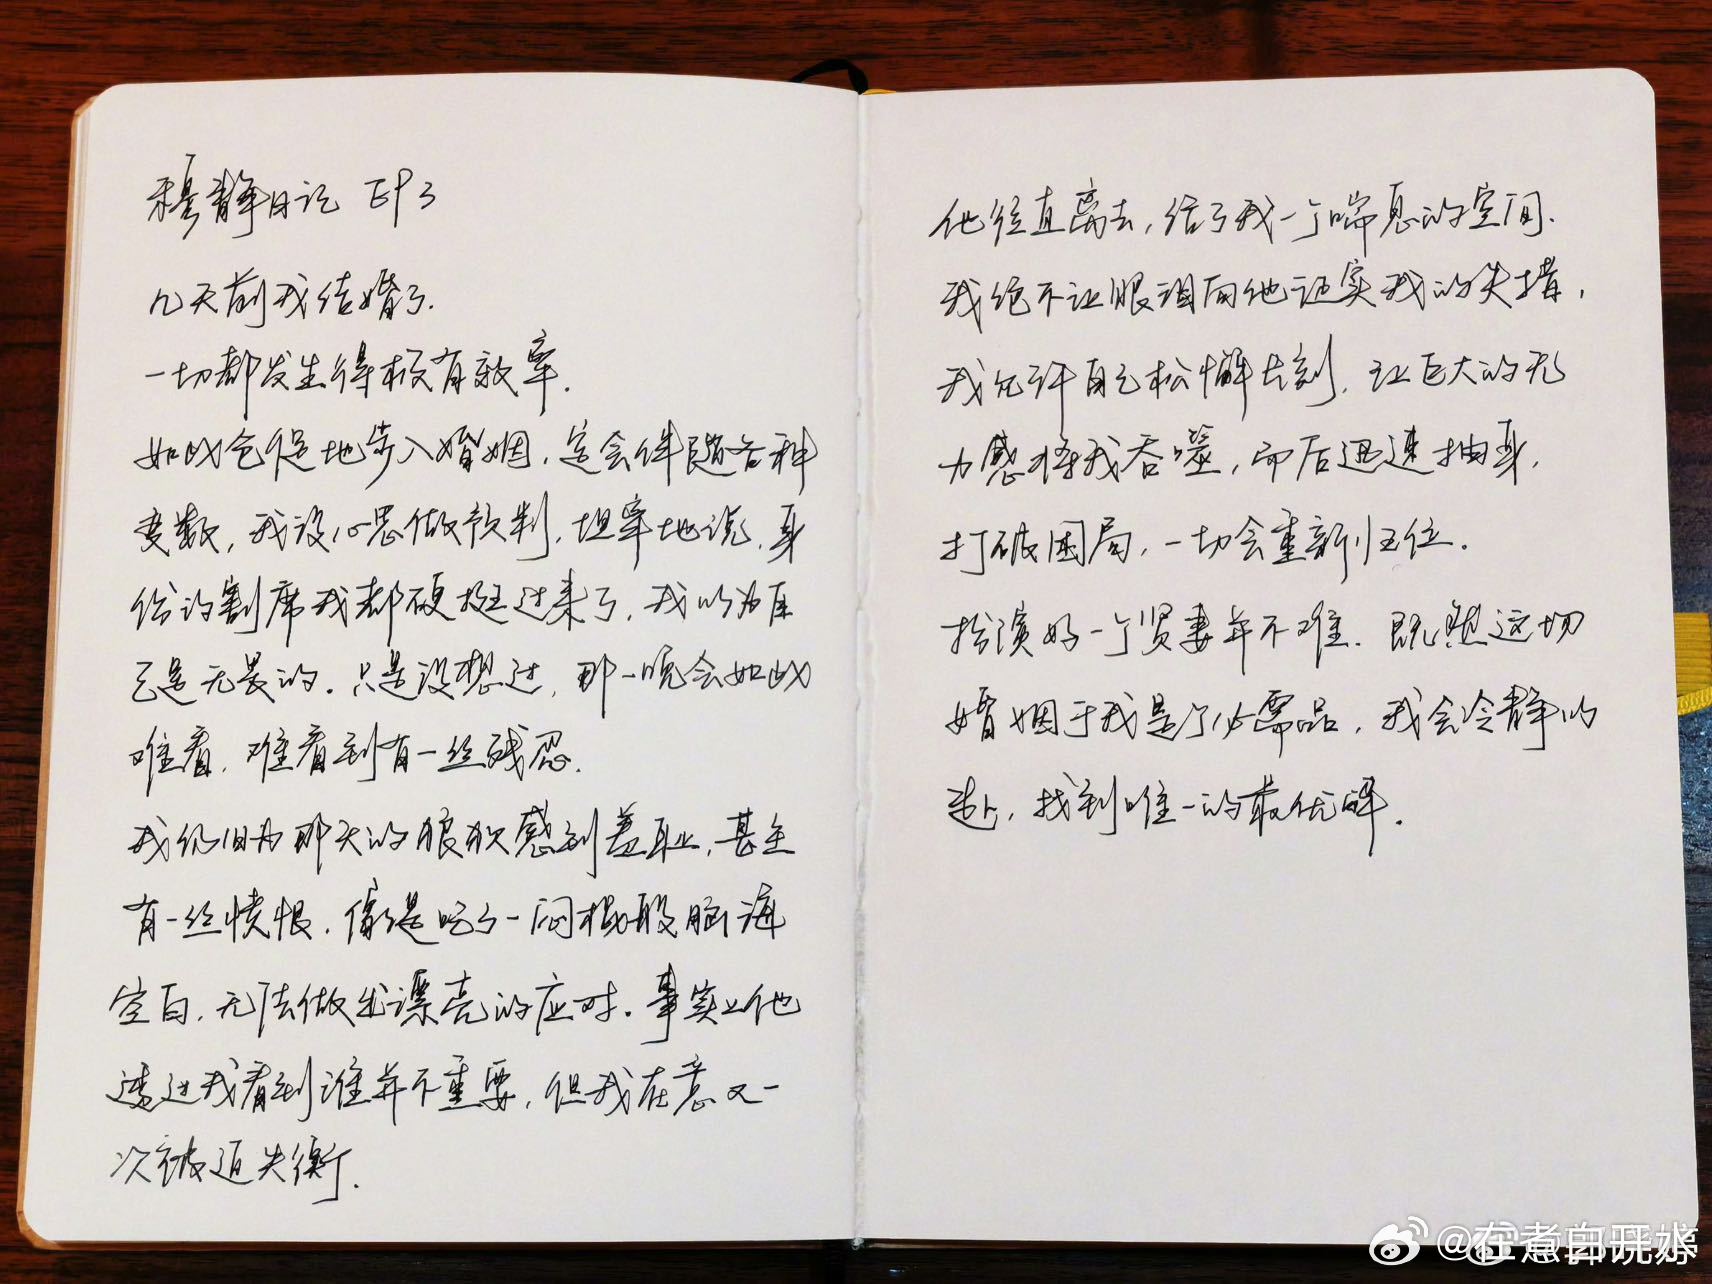 穆静日记 EP3
几天前我结婚了.
一切都发生得极有效率.
如此仓促地步入婚姻,定会伴随各种
变数,我没心思做预判,坦率地说,身
份的割席我都硬挺过来了,我以为自
己是无畏的.只是没想过,那一晚会如此
难看,难看到有一丝残忍.
我仍旧为那天的狼狈感到羞耻,甚至
有一丝愤恨.像是吃了一闷棍般脑海
空白,无法做出漂亮的应对.事实上他
透过我看到谁并不重要,但我在意又一
次被迫失衡.
他径直离去,给了我一个喘息的空间.
我绝不让眼泪向他证实我的失措,
我允许自己松懈片刻,让巨大的无
力感将我吞噬,而后迅速抽身,
打破困局,一切会重新归位.
扮演好一个贤妻并不难.既然这切
婚姻于我是个必需品,我会冷静的
赴,找到唯一的最优解.